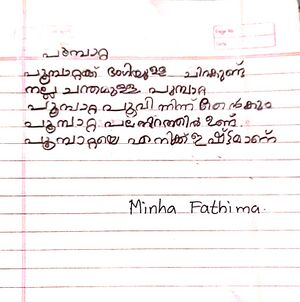 പൂമ്പാറ്റ
പൂമ്പാറ്റക്ക് ഭംഗിയുള്ള ചിറകുണ്ട്
നല്ല ചന്തമുള്ള പൂമ്പാറ്റ
പൂമ്പാറ്റ പൂവിൽ നിന്ന് തേൻ കുടിക്കും
പൂമ്പാറ്റ പലനിറത്തിൽ ഉണ്ട്.
പൂമ്പാറ്റയെ എനിക്ക് ഇഷ്ട്ടമാണ്
Minha Fathima.